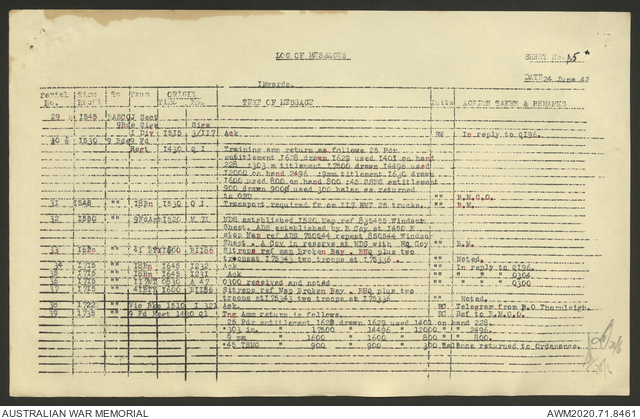 LOG OF MESSAGES
SHEET No. 15
DATE 24 June 42
Inwards.
Serial No. Time Rec'd To From ORIGIN TIME No. TEXT OF MESSAGE Initls ACTION TAKEN & REMARKS
29 1545 Sect
Bde Sigs Sigs
1 Div 1515 3/117 Ack RW In reply to QI96.
30 1530 9 Bde 9 Fd
Regt 1430 Q1 Training amm return as follows 25 Pdr
entitlement 1628 drawn 1629 used 1401 on hand
228 :303 m titlement 17500 drawn 14496 used
12000 on hand 2496 :9mm titlement 1630 drawn
1600 used 800 on hand 800 :45 TSMG entitlement
900 drawn 900 used 300 balance returned
to ORD B.M.G.O.
31 1545 " 18Bn 1530 Q1 Transport required from 117 25 trucks. " B.M.
32 1550 " 9FdAmb 1520 M 71 MDS established 1520 Map ref 835455 Windsor
Sheet. ADS established by B Coy at 1450 K
stop Map ref ADS 750544 repeat 850544 Windsor
Sheet. A Coy in reserve at MDS with HQ Coy " B.M.
33 1520 " 1600 BI186 Sitreps ref map Broken Bay . BHQ plus two
troops at I75343 two troops at I75336. " Noted.
34 1715 " 18Bn 1645 I232 Ack " In reply to QI96
35 1715 " 18Bn 1645 I231 Ack " " " 0304
36 1715 " 0830 A 47 0300 received and noted " " " 0300
37 1715 " 1600 BI186 Sitreps ref Map Broken Bay . BHQ plus two
troops at I75343 two troops at I75336. " Noted.
38 1722 " Vic Bks 1610 I 321 RC Telegram from P.O Thornleigh.
39 1735 " 9 Fd Regt 1430 Q1 Tng Amm return is follows. RC Ref to B.M.G.O.
25 Pdr entitlement 1628 drawn 1629 used 1401 on hand 228.
*303 in " 17500 " 14496 " 12000 " " 2496.
9 mm " 1600 " 1600 " 800 " " 800.
*45 TSMG " 900 " 900 " 300 Balance returned to Ordnance.
AUSTRALIAN WAR MEMORIAL
AWM2020.71.8461